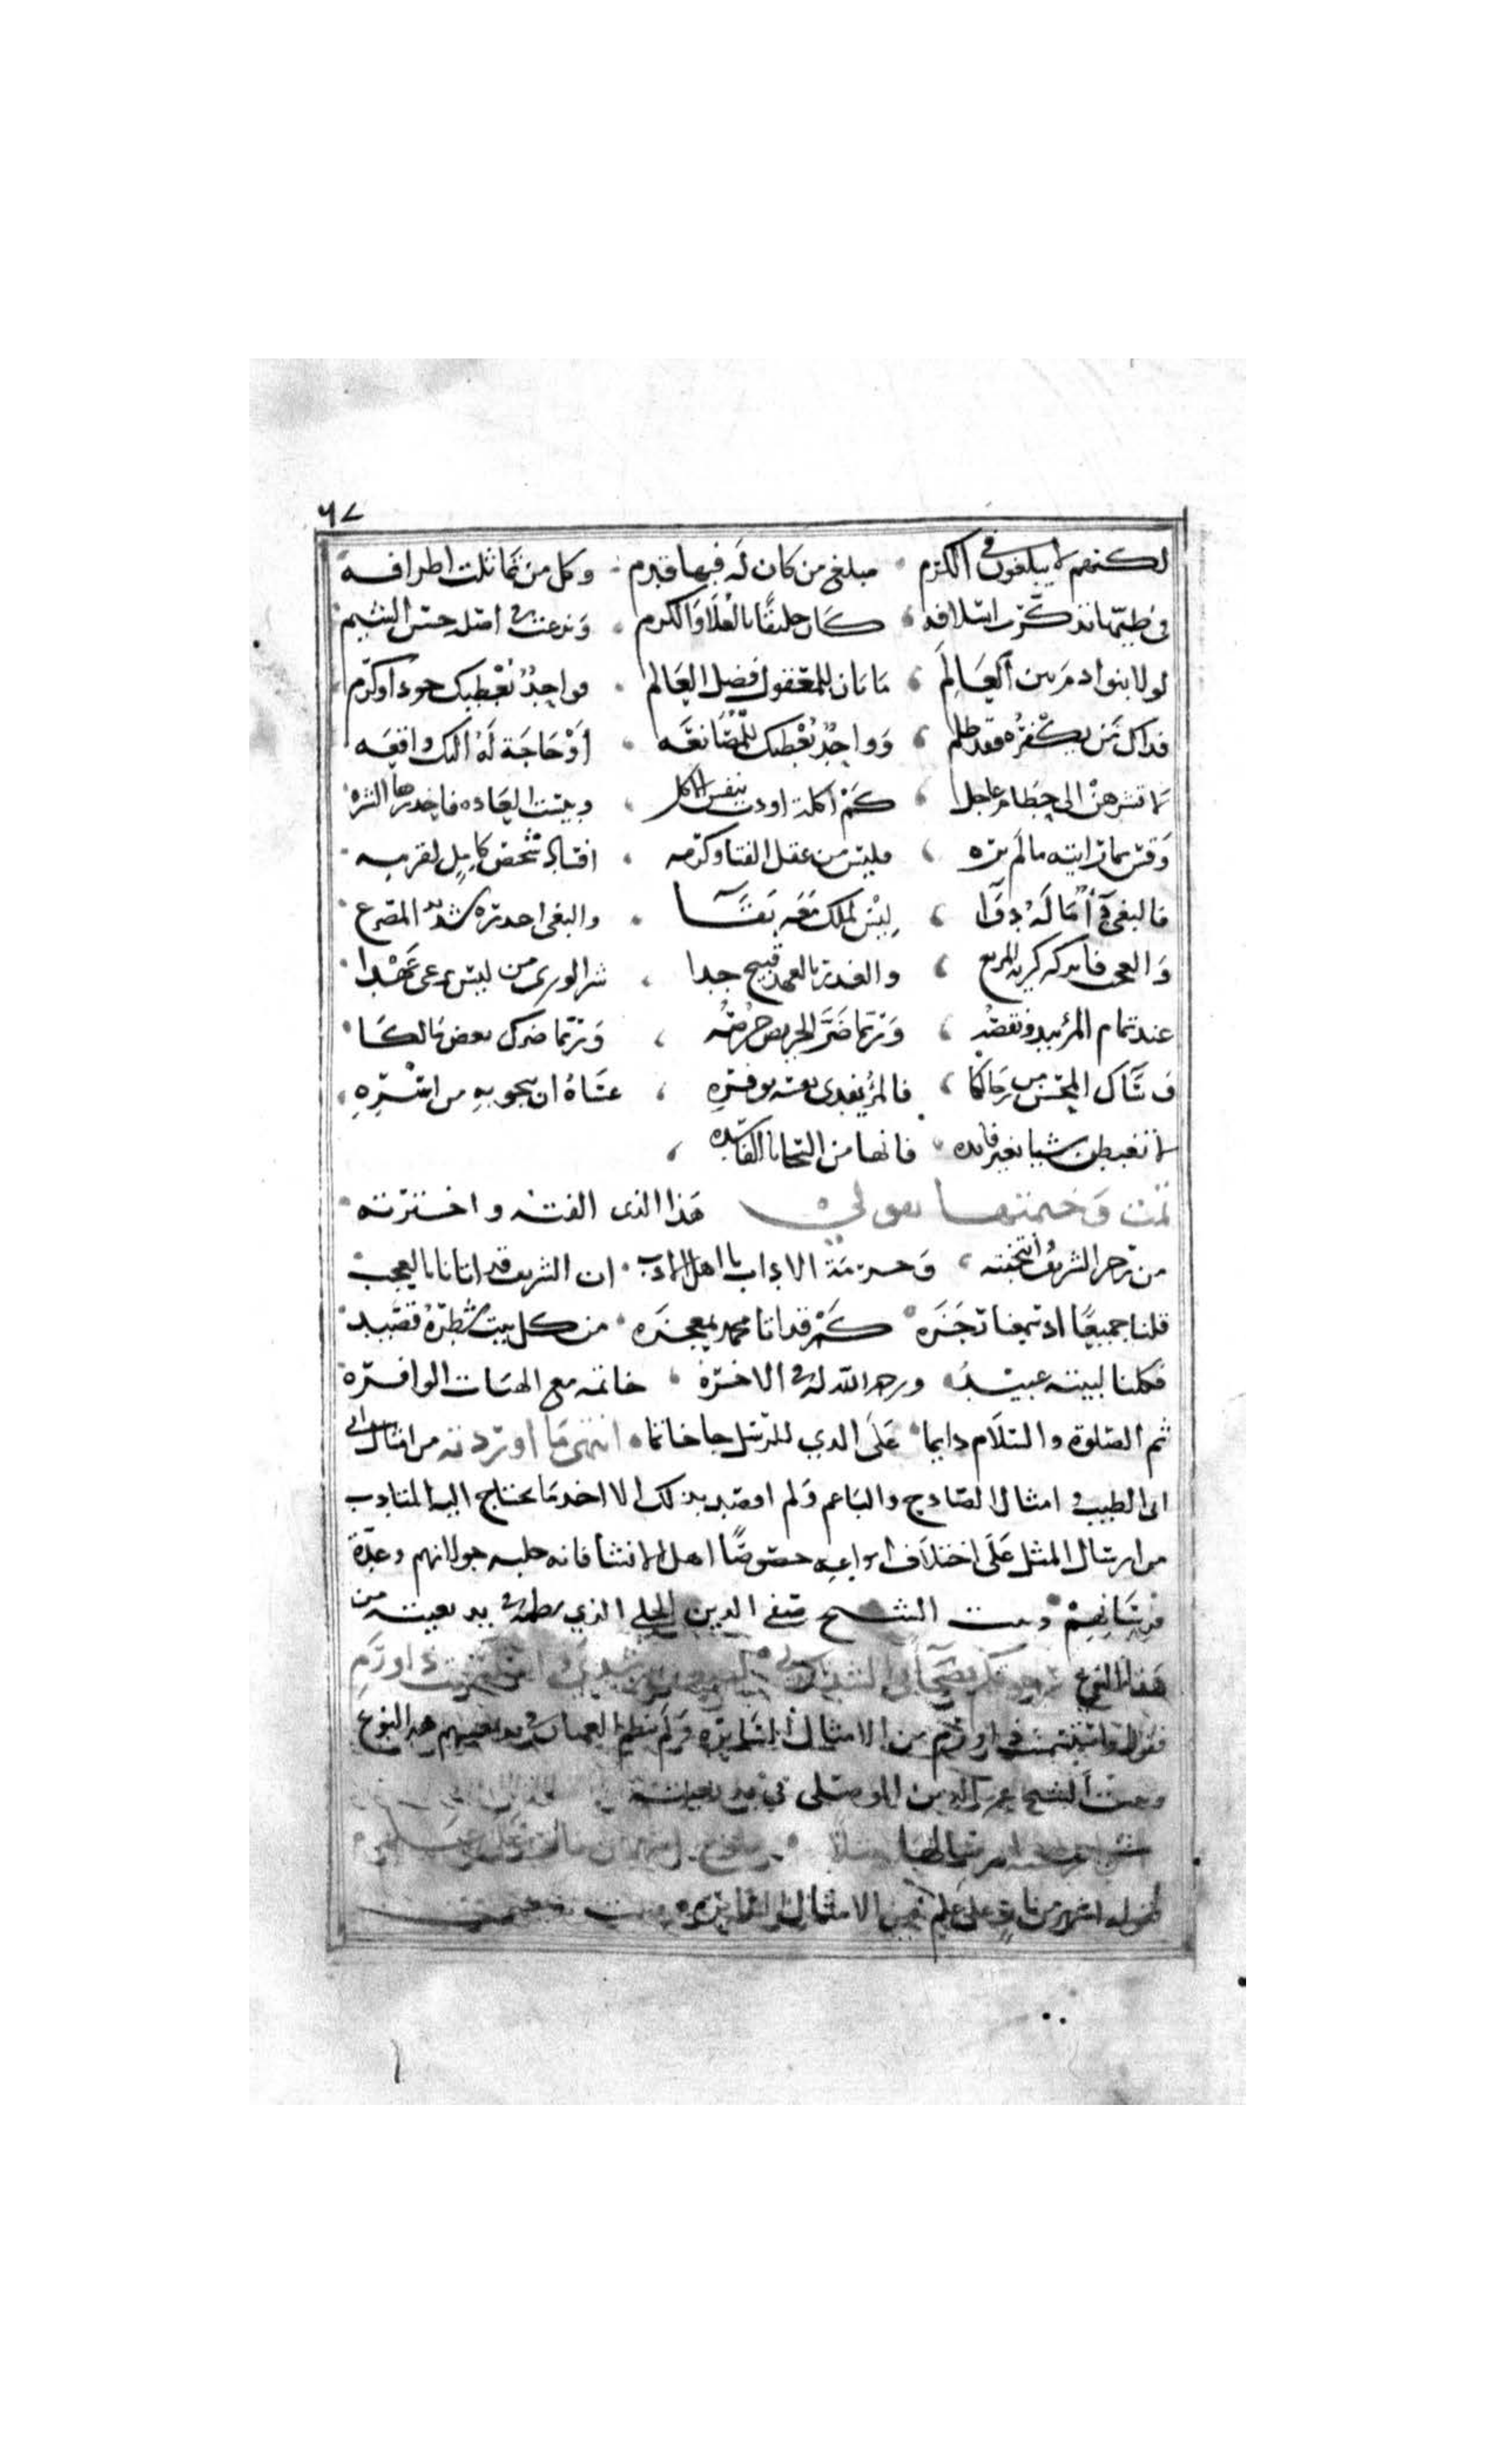 ٦٧
لكنهم لا يبلغون في الكرم ، مبلغ من كان له فيها قدم ، وكل من تماثلت اطرافه
في طيبها تذكرت اسلافه ، كان خليقا بالعلا والكرم ، وبرعت في اصله حسن الشيم
لولا بنو ادم بين العالم ، ما بان للعقول فضل العالم ، فواحد يعطيك جودا وكرم
فذاك من يكفره فقد ظلم ، وواحد يعطيك للمصانعه ، أو حاجة له اليك واقعه
لا تشرهن الى حطام عاجل ، كم اكلة اودت بنفس الاكل ، وبيست العاده فاحذرها الشره
وقس بما رايته ما لم تره ، فليس من عقل الفتى وكرمه ، افساد شخص كامل لقرمه
فالبغي داء ما له دوا ، ليس لملك معه بقا ، والبغي احذره شديد المصرع
والعجب فاتركه كريه المربع ، والغدر بالعهد قبيح جدا ، شر الورى من ليس يرعى عهدا
عند تمام المرء يبدو نقصه ، وربما ضر الحريص حرصه ، وربما ضرك بعض مالكا
وساك المحسن من رجالكا ، فالمرء يفدي نفسه بوفره ، عساه ان ينجو به من اسره
لا تغبطن شيا بغير فايده ، فانها من السجايا الفاسده ،
تمت وختمتها بقولي هذا الذي الفته واخترته
من رجز الشريف وانتخبته ، وحرمة الاداب يا اهل الادب ، ان الشريف قد اتانا بالعجب
قلنا جميعا اذ سمعنا رجزه ، كم قد اتا محمد بمعجزه ، من كل بيت شطره قصيد
فكلنا لبيته عبيد ، ورحمة الله له في الاخره ، خاتمه مع الهبات الوافره
ثم الصلوة والسلام دايما ، على الذي للرسل جا خاتما ، انتهى ما اوردته من امثال
ابي الطيب وامثال الصادح والباغم ولم اقصد بذلك الا اخذ ما يحتاج اليه المتادب
من ارسال المثل على اختلاف انواعه خصوصا اهل الانشا فانه حلبه جولانهم وعدة
فرسانهم وبيت الشيخ صفي الدين الحلي الذي نظمه في بديعيته من
هذا النوع
فقوله استسمنت ذا ورم من الامثال السايره ولم ينظم العميان في بديعيتهم هذا النوع
وبيت الشيخ عز الدين الموصلي في بديعيته
فقوله اشهر من نار على علم من الامثال السايره وبيت بديعيتي